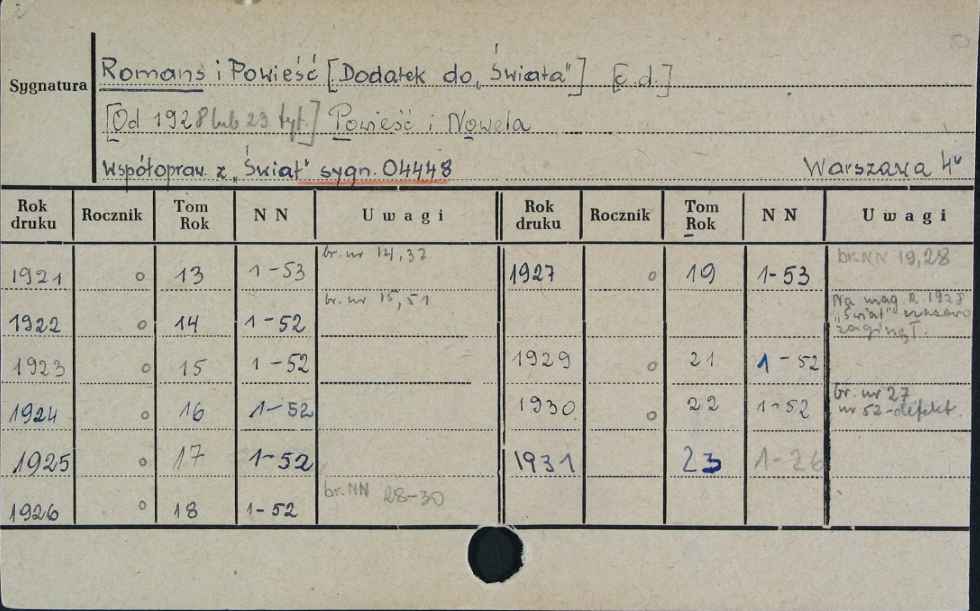 Sygnatura
Romans i Powieść [Dodatek do „Świata"] [c.d.]
[Od 1928 lub 23 tyt.] Powieść i Nowela
Współopraw. z „Świat" sygn. 04448 Warszawa 4°
Rok druku Rocznik Tom Rok NN Uwagi Rok druku Rocznik Tom Rok NN Uwagi
1921 o 13 1-53 br. nr 14,32 1927 o 19 1-53 br. NN 19,28
1922 o 14 1-52 br. nr 15,51 Na mag. R. 1928 „Świat" zaginął.
1923 o 15 1-52 1929 o 21 1-52
1924 o 16 1-52 1930 o 22 1-52 br. nr 27 nr 52-defekt.
1925 o 17 1-52 1931 23 1-26
1926 o 18 1-52 br. NN 28-30